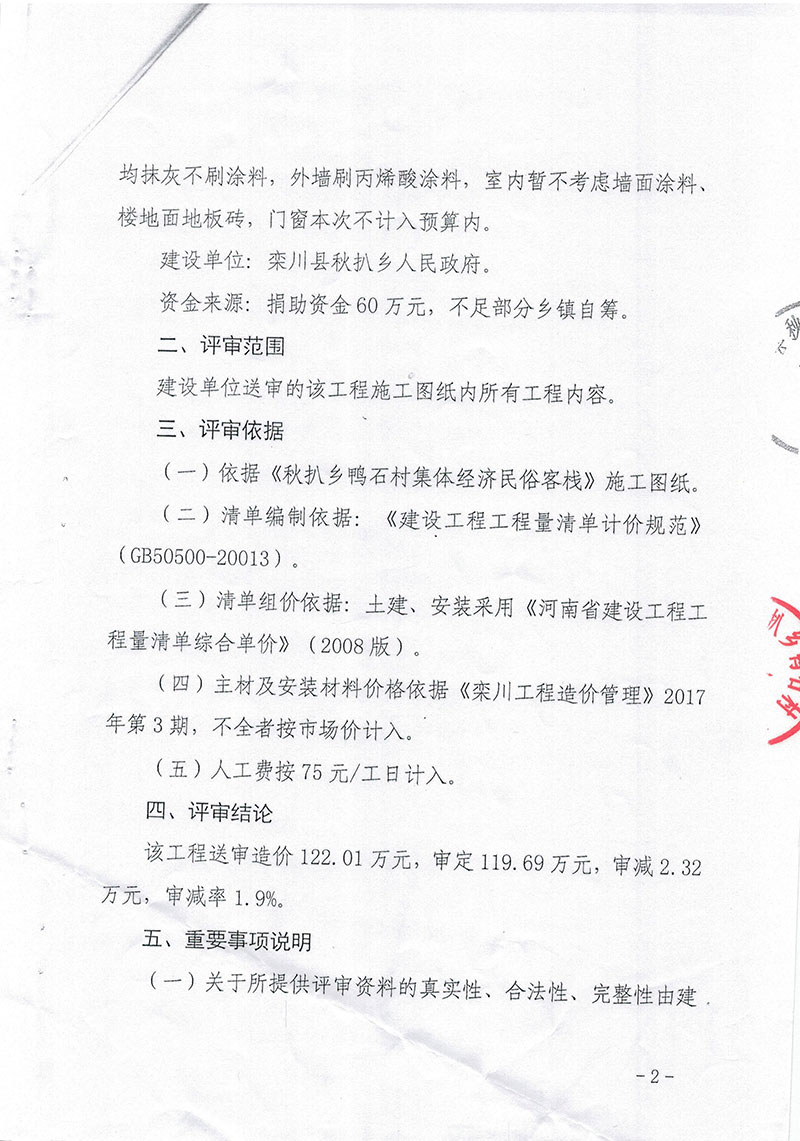 均抹灰不刷涂料，外墙刷丙烯酸涂料，室内暂不考虑墙面涂料、
楼地面地板砖，门窗本次不计入预算内。
建设单位：栾川县秋扒乡人民政府。
资金来源：捐助资金60万元，不足部分乡镇自筹。
二、评审范围
建设单位送审的该工程施工图纸内所有工程内容。
三、评审依据
（一）依据《秋扒乡鸭石村集体经济民俗客栈》施工图纸。
（二）清单编制依据：《建设工程工程量清单计价规范》
（GB50500-20013）。
（三）清单组价依据：土建、安装采用《河南省建设工程工
程量清单综合单价》（2008版）。
（四）主材及安装材料价格依据《栾川工程造价管理》2017
年第3期，不全者按市场价计入。
（五）人工费按75元/工日计入。
四、评审结论
该工程送审造价122.01万元，审定119.69万元，审减2.32
万元，审减率1.9%。
五、重要事项说明
（一）关于所提供评审资料的真实性、合法性、完整性由建
-2-
秋